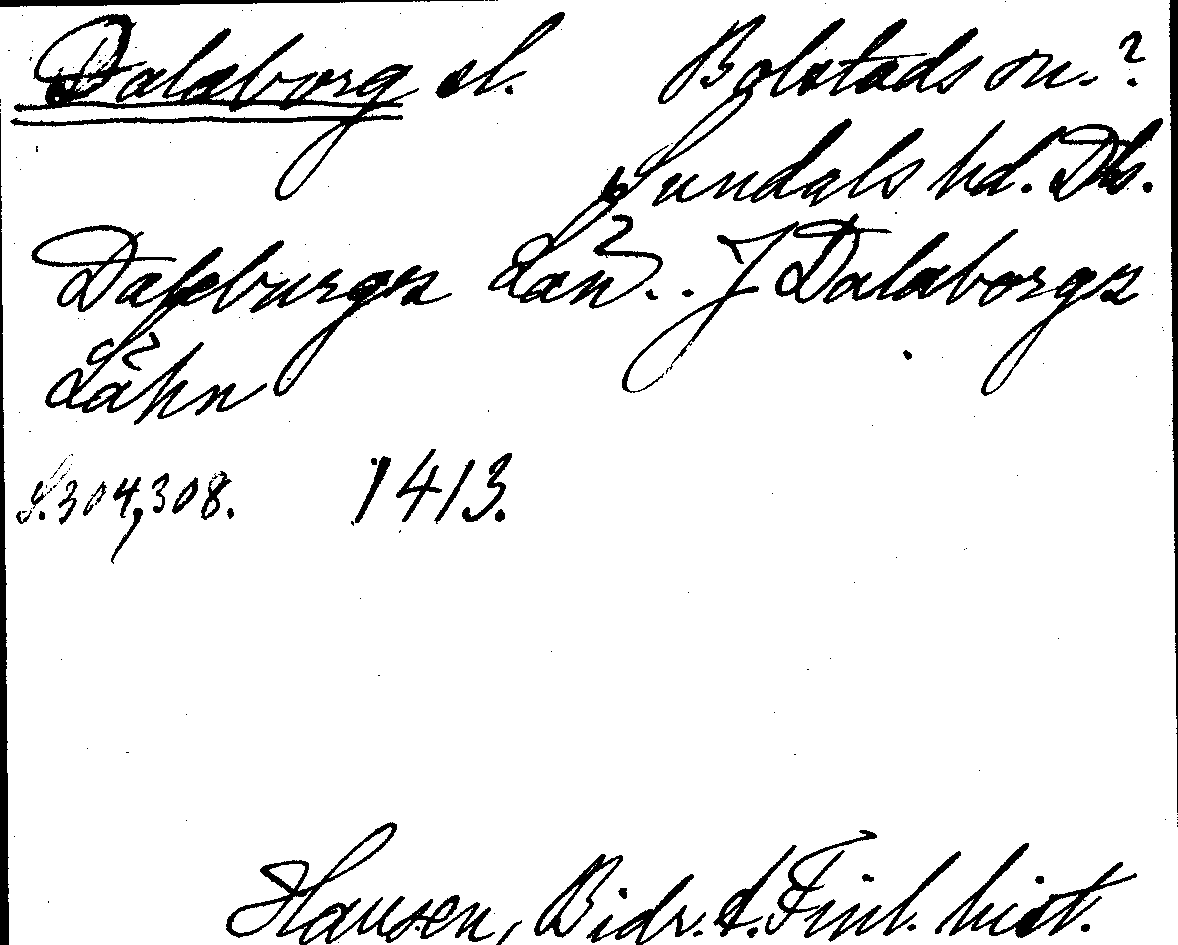 Dalaborg sl. Bolstads sn.?
Sundals hd. Dls.
Daleburgs Län.. J Dalaborgs
Lähn
S.304,308. 1413.
Hausen, Bidr. t. Finl. hist.